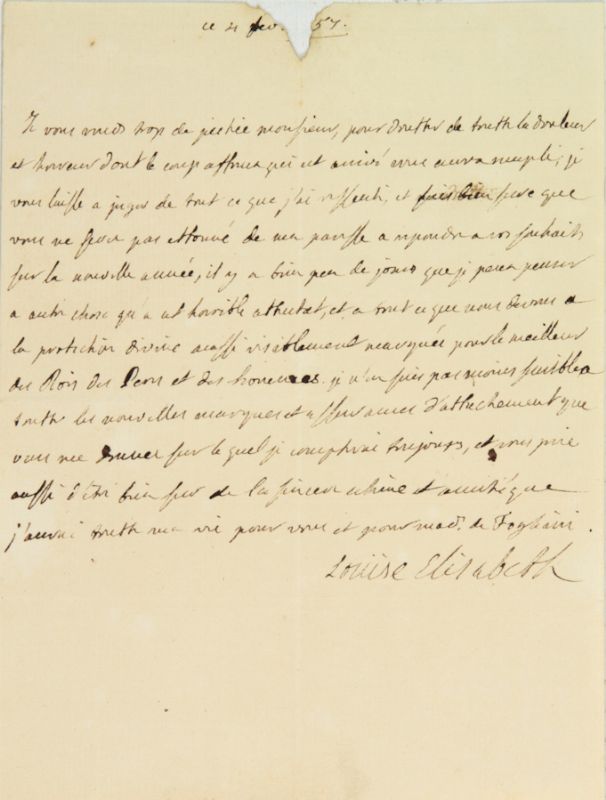 ce 4 fev. 57.
Je vous rends trop de justice monsieur, pour douter de toutte la douleur
et horreur dont le coup affreux qui est arrivé vous aura rempli; je
vous laisse a juger de tout ce que j'ai ressenti, et suis bien sure que
vous ne serez pas ettonné de ma paresse a repondre a vos souhaits
sur la nouvelle année, il y a bien peu de jours que je peux penser
a autre chose qu'a cet horrible attentat, et a tout ce que nous devons a
la protection divine aussi visiblement marquée pour le meilleur
des Rois des Peres et des hommes. je n'en suis pas moins sensible a
toutte les nouvelles marques et assurances d'attachement que
vous me donnez sur le quel je compterai toujours, et vous prie
aussi d'être bien sur de la sincere estime et amitié que
j'aurai toutte ma vie pour vous et pour mad. de Fogliani.
Louise Elisabeth